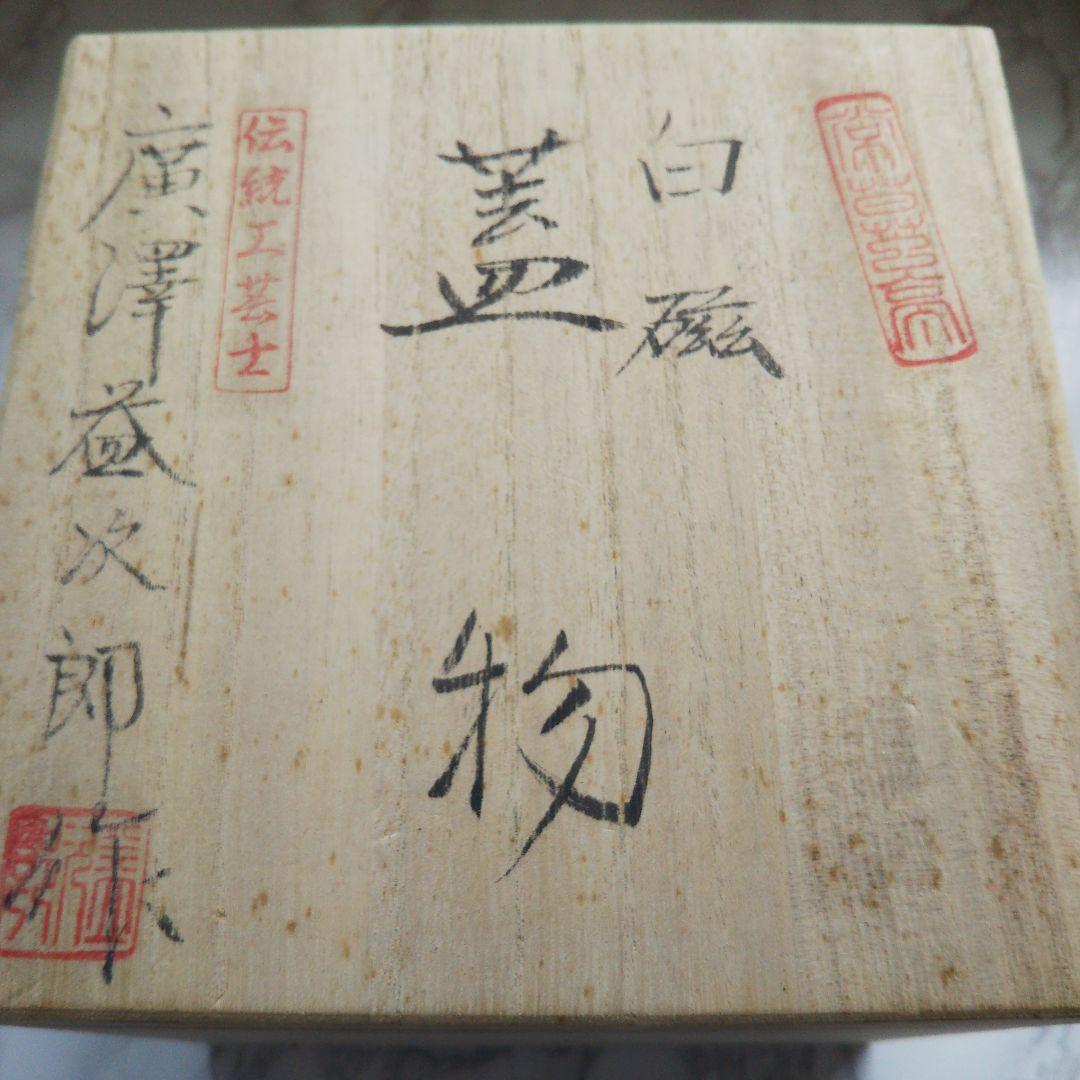 白磁
蓋物
伝統工芸士
廣澤益次郎作